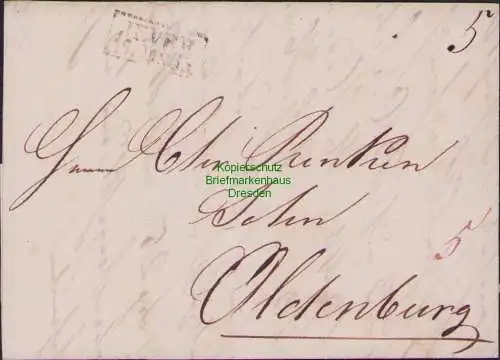 5
Herrn Chr. Renken
Sohn
5
Oldenburg
Kopierschutz
Briefmarkenhaus
Dresden